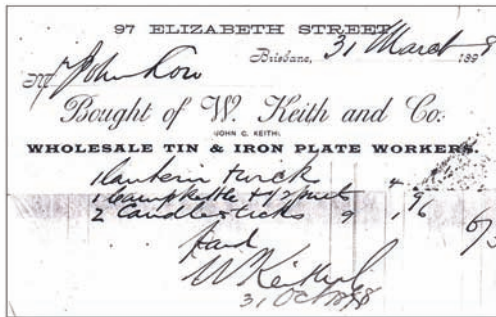 97 ELIZABETH STREET
Brisbane, 31 March 1898
M John
Bought of W. Keith and Co.
(JOHN C. KEITH)
WHOLESALE TIN & IRON PLATE WORKERS.
1 Lantern & wick 4
1 Campkettle 1/6
2 Candlesticks 9 1/6
6/3
Paid
W Keith
31 Oct 1898